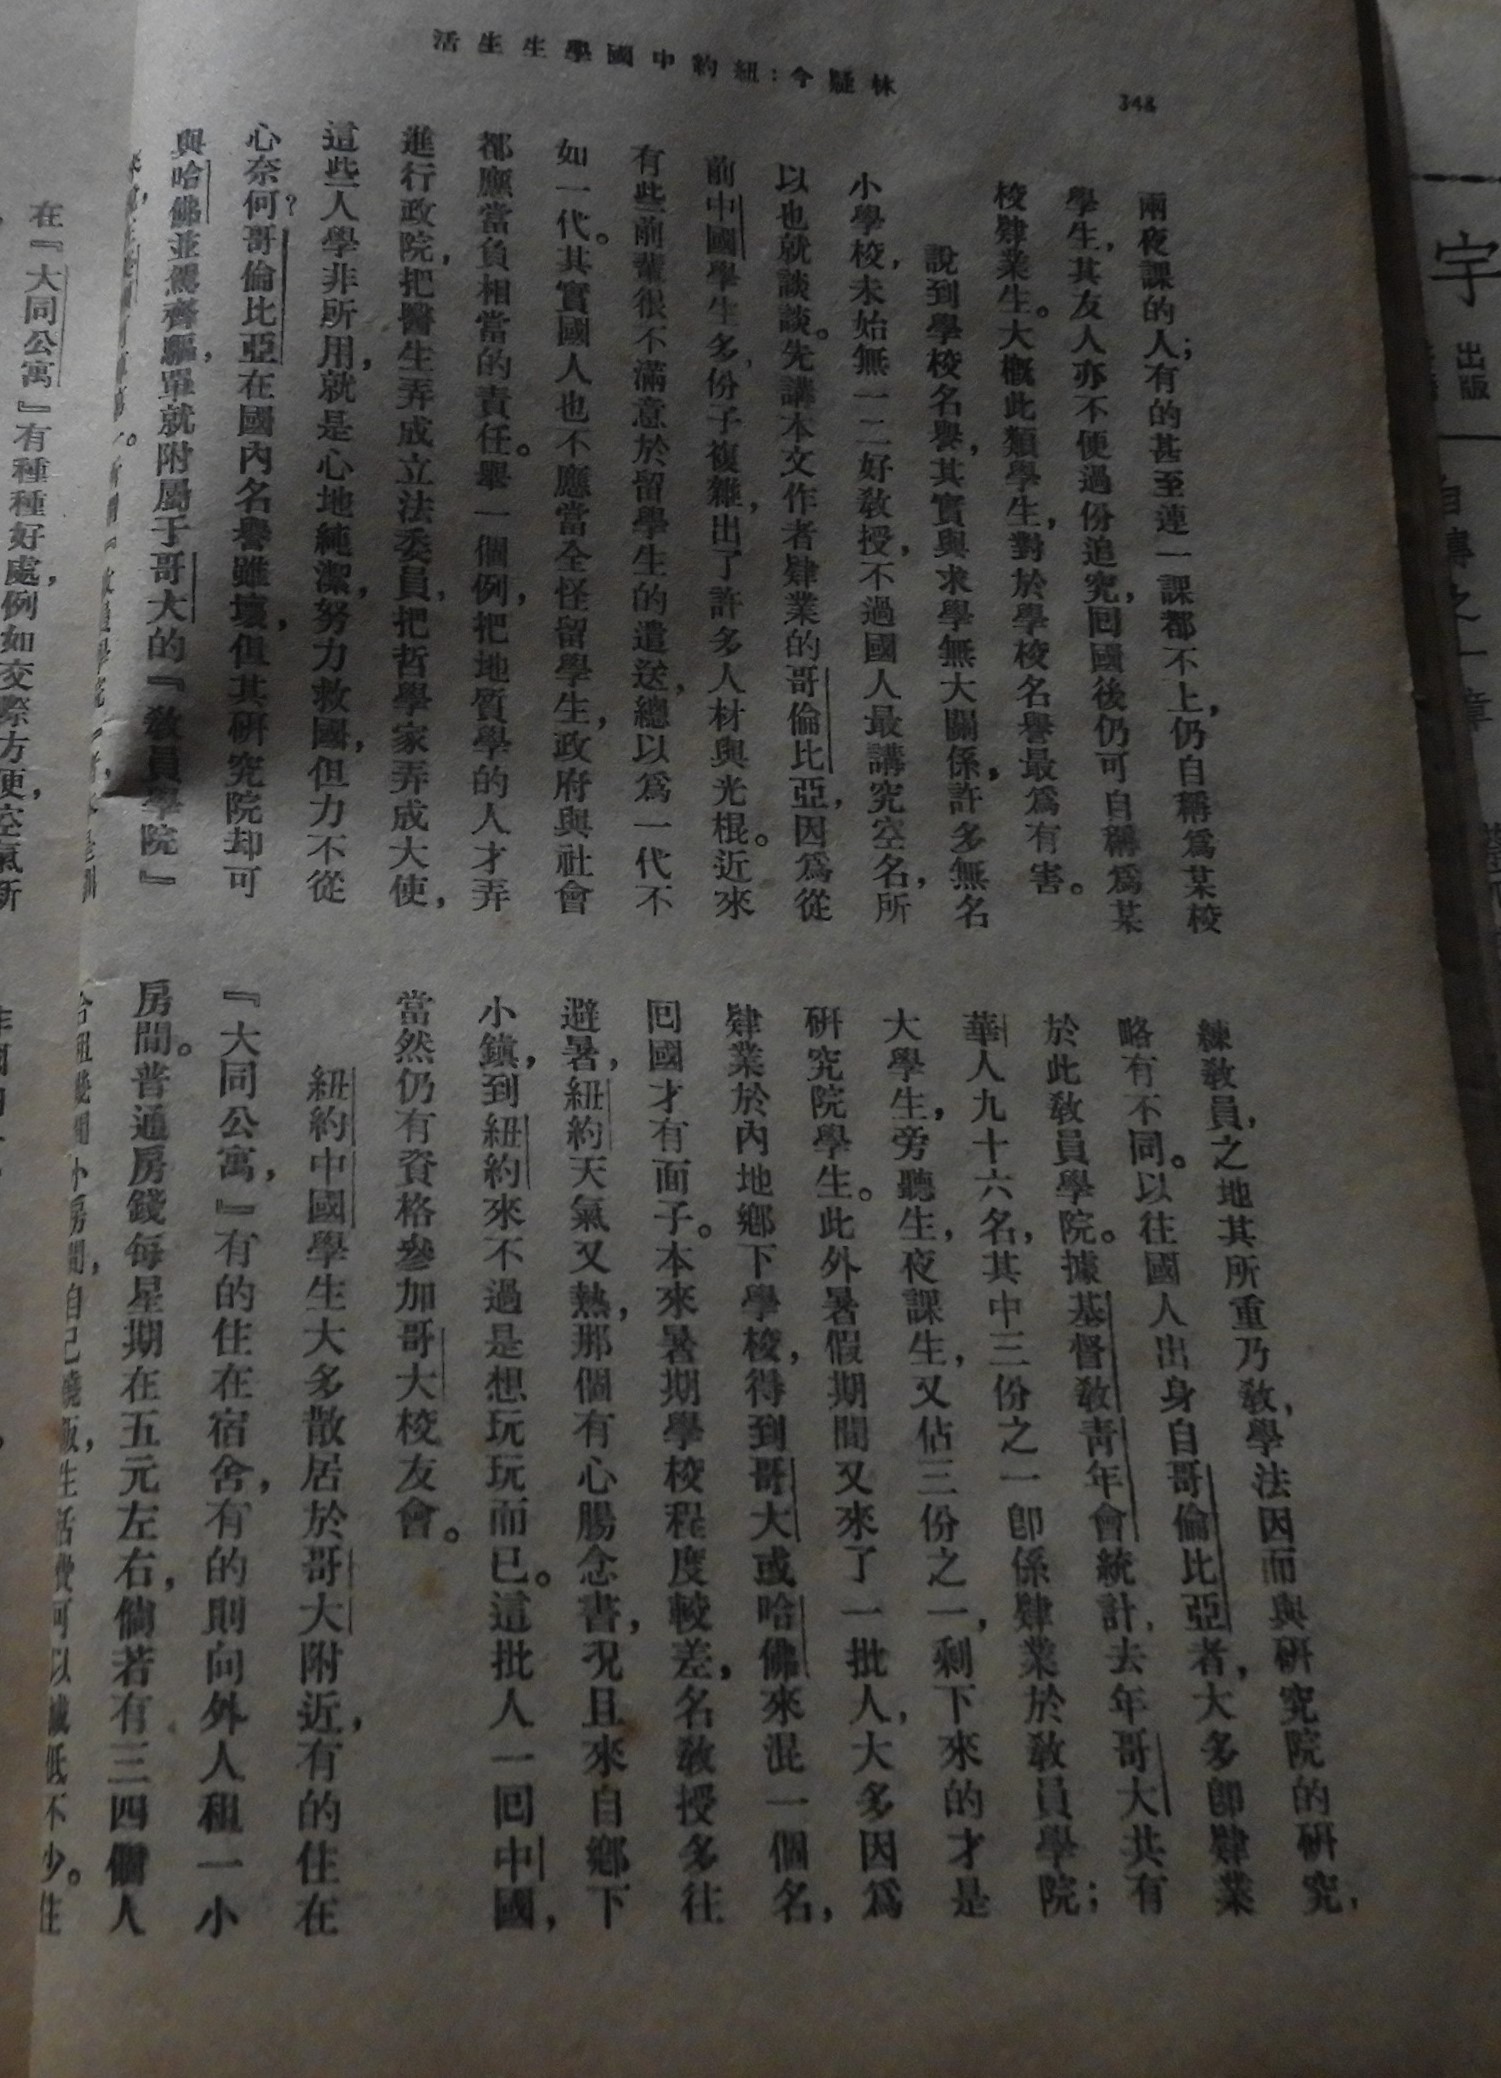 林疑今：紐約中國學生生活
348
兩夜課的人；有的甚至連一課都不上，仍自稱爲某校
學生，其友人亦不便過份追究，回國後仍可自稱爲某
校肄業生。大概此類學生，對於學校名譽最爲有害。
說到學校名譽，其實與求學無大關係，許多無名
小學校，未始無一二好敎授，不過國人最講究空名，所
以也就談談。先講本文作者肄業的哥倫比亞，因爲從
前中國學生多，份子複雜，出了許多人材與光棍。近來
有些前輩很不滿意於留學生的遣送，總以爲一代不
如一代。其實國人也不應當全怪留學生，政府與社會
都應當負相當的責任。舉一個例，把地質學的人才弄
進行政院，把醫生弄成立法委員，把哲學家弄成大使，
這些人學非所用，就是心地純潔，努力救國，但力不從
心奈何？哥倫比亞在國內名譽雖壞，但其研究院却可
與哈佛並駕齊驅，單就附屬于哥大的『敎員學院』
練敎員，之地其所重乃敎，學法因而與研究院的研究，
略有不同。以往國人出身自哥倫比亞者，大多卽肄業
於此敎員學院。據基督敎靑年會統計，去年哥大共有
華人九十六名，其中三份之一卽係肄業於敎員學院；
大學生，旁聽生，夜課生，又佔三份之一，剩下來的才是
研究院學生。此外暑假期間又來了一批人，大多因爲
肄業於內地鄕下學校，得到哥大或哈佛來混一個名，
回國才有面子。本來暑期學校程度較差，名敎授多往
避暑，紐約天氣又熱，那個有心腸念書，况且來自鄕下
小鎭，到紐約來不過是想玩玩而已。這批人一回中國，
當然仍有資格參加哥大校友會。
紐約中國學生大多散居於哥大附近，有的住在
『大同公寓，』有的住在宿舍，有的則向外人租一小
房間。普通房錢每星期在五元左右，倘若有三四個人
小房間，自己燒飯，生活費可以減低不少。住
在『大同公寓』有種種好處，例如交際方便，空氣新
宇
出版
自傳之一章